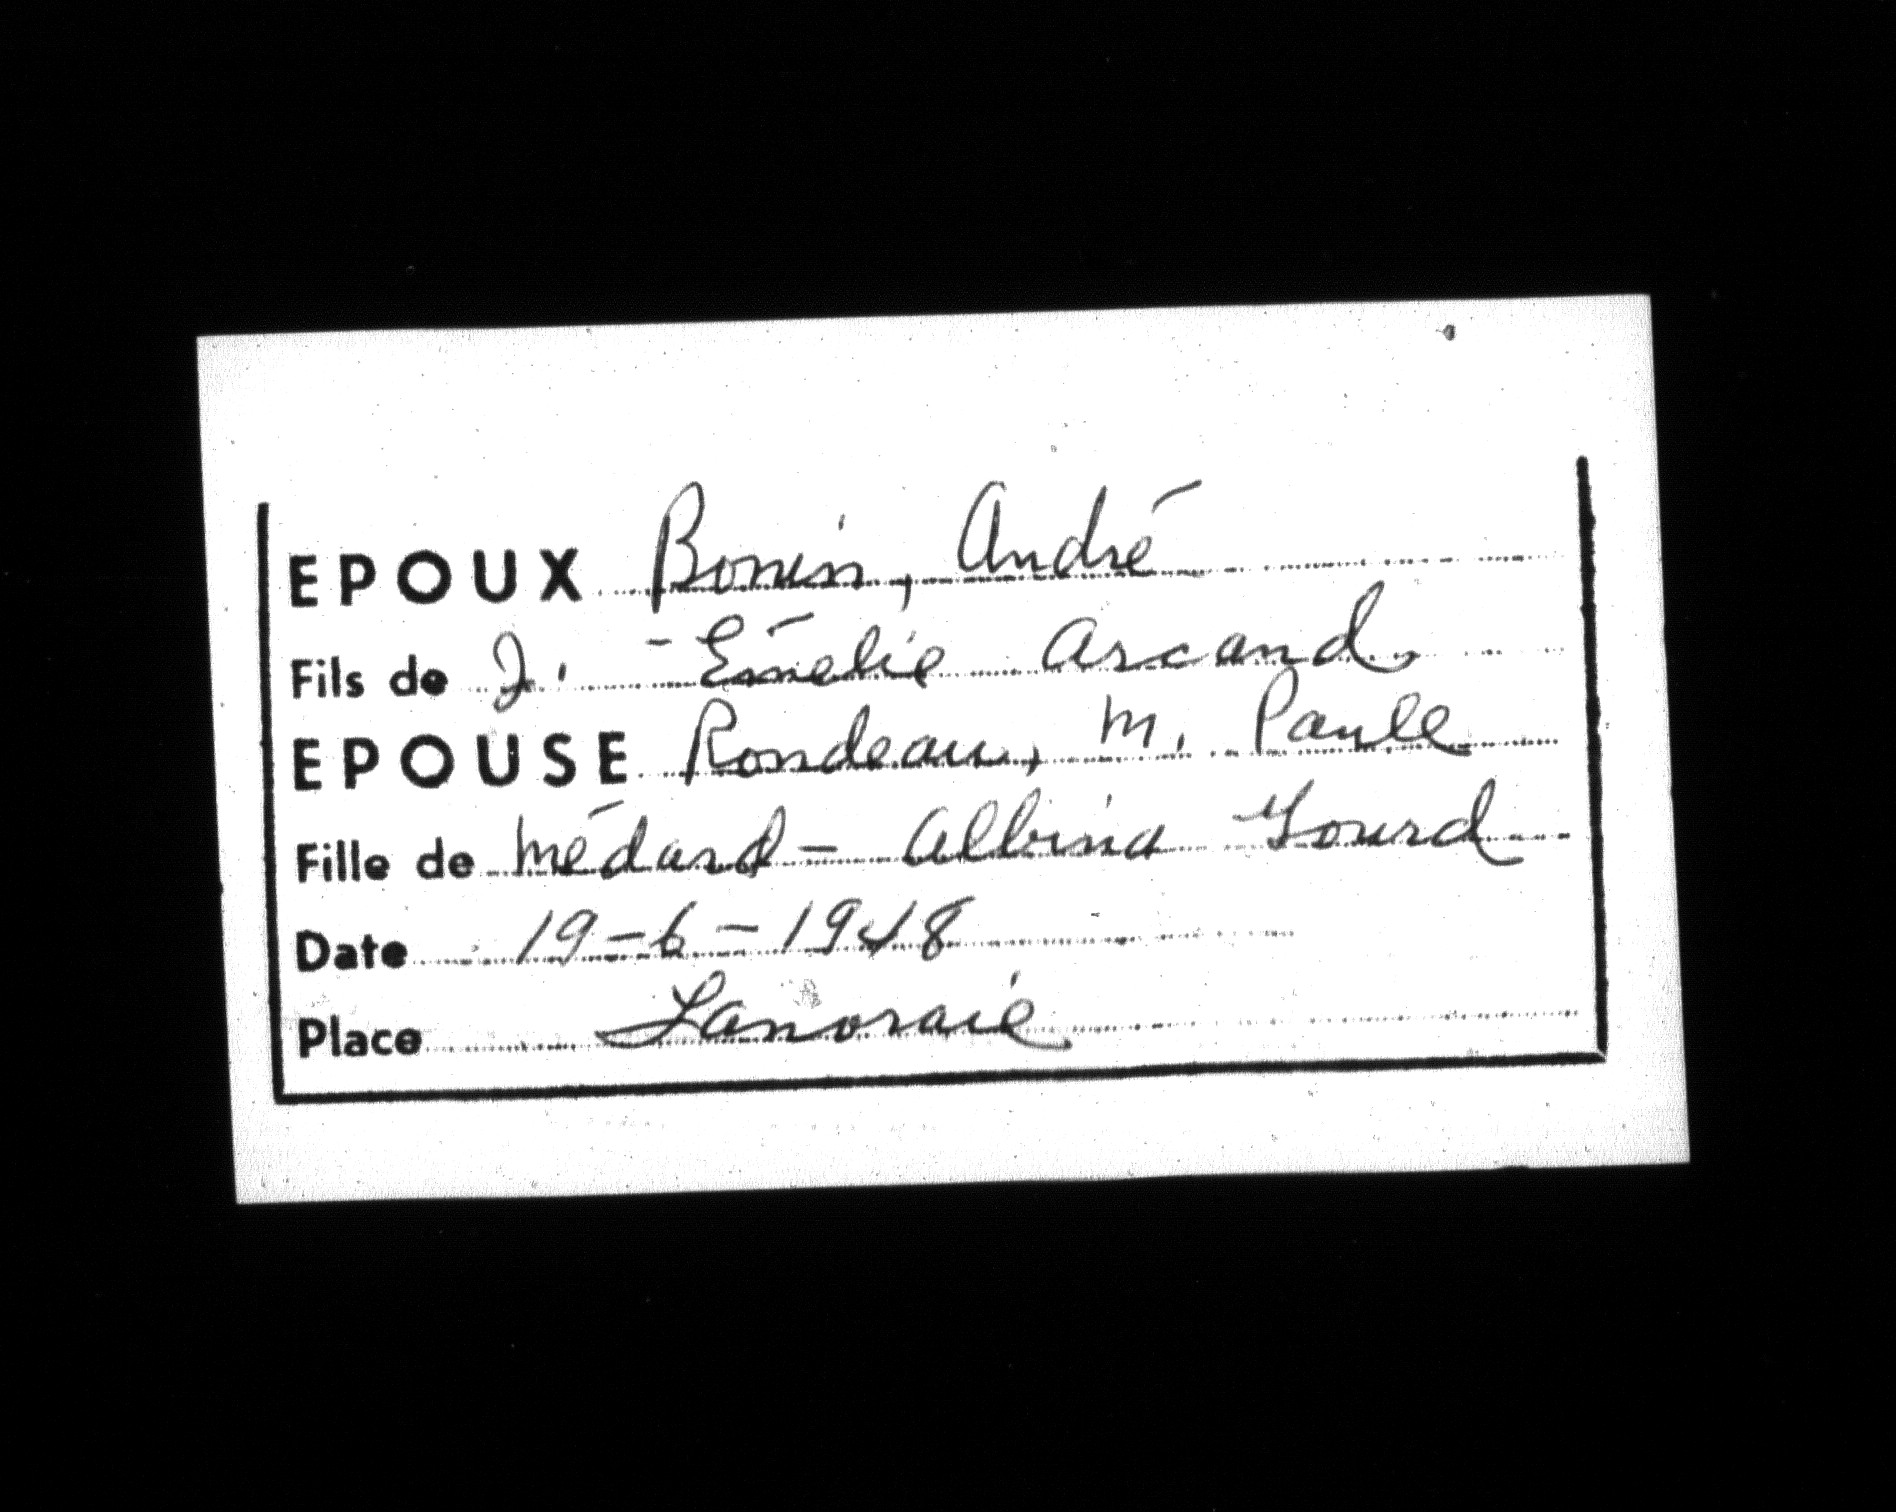 EPOUX Bonin, André
Fils de J. - Émélie Arcand
EPOUSE Rondeau, M. Paule
Fille de Médard - Albina Gourd
Date 19-6-1948
Place Lanoraie